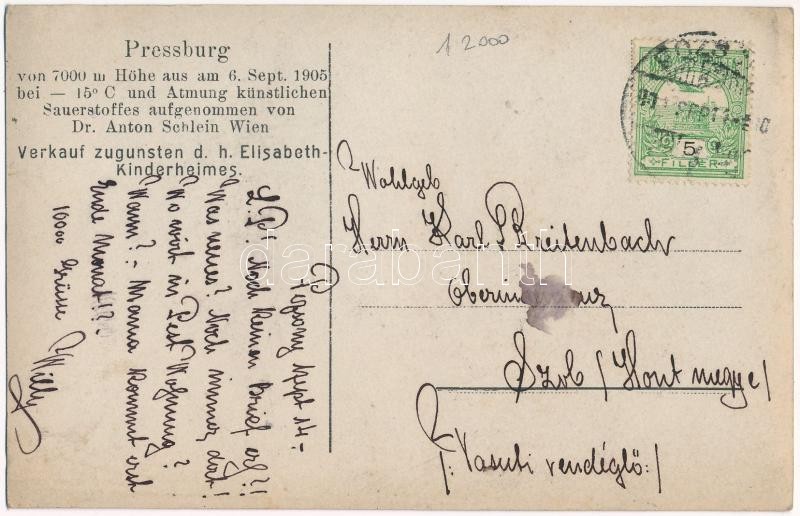 Pressburg
von 7000 m Höhe aus am 6. Sept. 1905
bei — 15° C und Atmung künstlichen
Sauerstoffes aufgenommen von
Dr. Anton Schlein Wien
Verkauf zugunsten d. h. Elisabeth-
Kinderheimes.
12000
5
FILLÉR
Wohlgeb
Herrn Karl Breitenbach
Szob / Hont megye /
/: Vasuti vendéglö :/
Pozsony Sept 14.-
L. P! Noch keinen Brief erh?!!
Was neues? Noch immer dort!
Wo wirst in Pest Wohnung?
Wann? - Mama kommt erst
Ende Monat!?
1000 Grüsse
Willy
darabanth